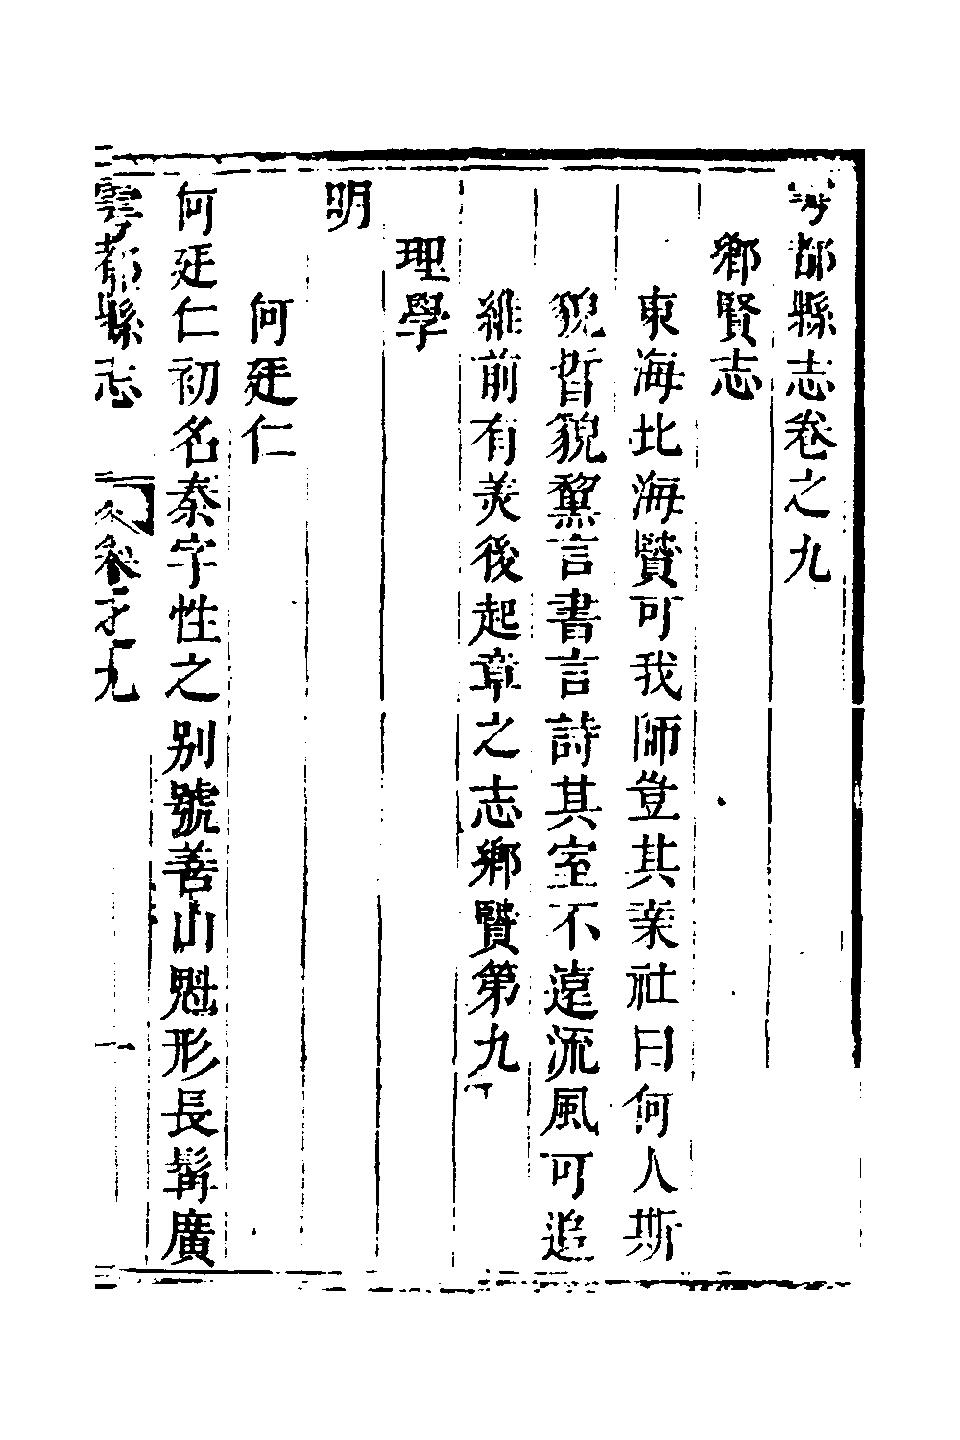 雩都縣志卷之九
鄉賢志
東海北海賢可我師登其亲社曰何人斯
貌晳貌黧言書言詩其室不遠流風可追
維前有美後起章之志鄉賢第九
理學
明
何廷仁
何廷仁初名秦字性之别號善山魁形長髯廣
雩都縣志 卷之九 一